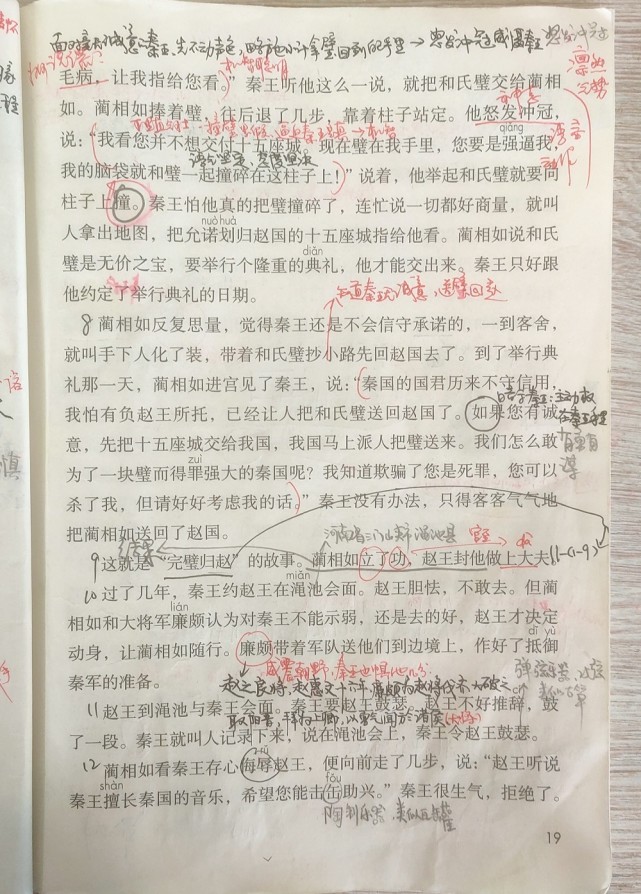 毛病，让我指给您看。”秦王听他这么一说，就把和氏璧交给蔺相
如。蔺相如捧着璧，往后退了几步，靠着柱子站定。他怒发冲冠，
qiǎng
说：“我看您并不想交付十五座城。现在璧在我手里，您要是强逼我，
我的脑袋就和璧一起撞碎在这柱子上！”说着，他举起和氏璧就要向
柱子上撞。秦王怕他真的把璧撞碎了，连忙说一切都好商量，就叫
nuò huà
人拿出地图，把允诺划归赵国的十五座城指给他看。蔺相如说和氏
diǎn
璧是无价之宝，要举行个隆重的典礼，他才能交出来。秦王只好跟
他约定了举行典礼的日期。
知道秦王无诚意，送璧回赵
8 蔺相如反复思量，觉得秦王还是不会信守承诺的，一到客舍，
就叫手下人化了装，带着和氏璧抄小路先回赵国去了。到了举行典
礼那一天，蔺相如进宫见了秦王，说：“秦国的国君历来不守信用，
我怕有负赵王所托，已经让人把和氏璧送回赵国了。如果您有诚
意，先把十五座城交给我国，我国马上派人把璧送来。我们怎么敢
zuì
为了一块璧而得罪强大的秦国呢？我知道欺骗了您是死罪，您可以
杀了我，但请好好考虑我的话。”秦王没有办法，只得客客气气地
把蔺相如送回了赵国。
结果
河南省三门峡市渑池县
9 这就是“完璧归赵”的故事。蔺相如立了功，赵王封他做上大夫。
miǎn
10 过了几年，秦王约赵王在渑池会面。赵王胆怯，不敢去。但蔺
lián
相如和大将军廉颇认为对秦王不能示弱，还是去的好，赵王才决定
dǐ yù
动身，让蔺相如随行。廉颇带着军队送他们到边境上，作好了抵御
秦军的准备。
赵之良将，赵惠文王十六年，廉颇为赵将伐齐，大破之
11 赵王到渑池与秦王会面。秦王要赵王鼓瑟。赵王不好推辞，鼓
取阳晋，拜为上卿，以勇气闻于诸侯
了一段。秦王就叫人记录下来，说在渑池会上，秦王令赵王鼓瑟。
rǔ
12 蔺相如看秦王存心侮辱赵王，便向前走了几步，说：“赵王听说
shàn
fǒu
秦王擅长秦国的音乐，希望您能击缶助兴。”秦王很生气，拒绝了。
19